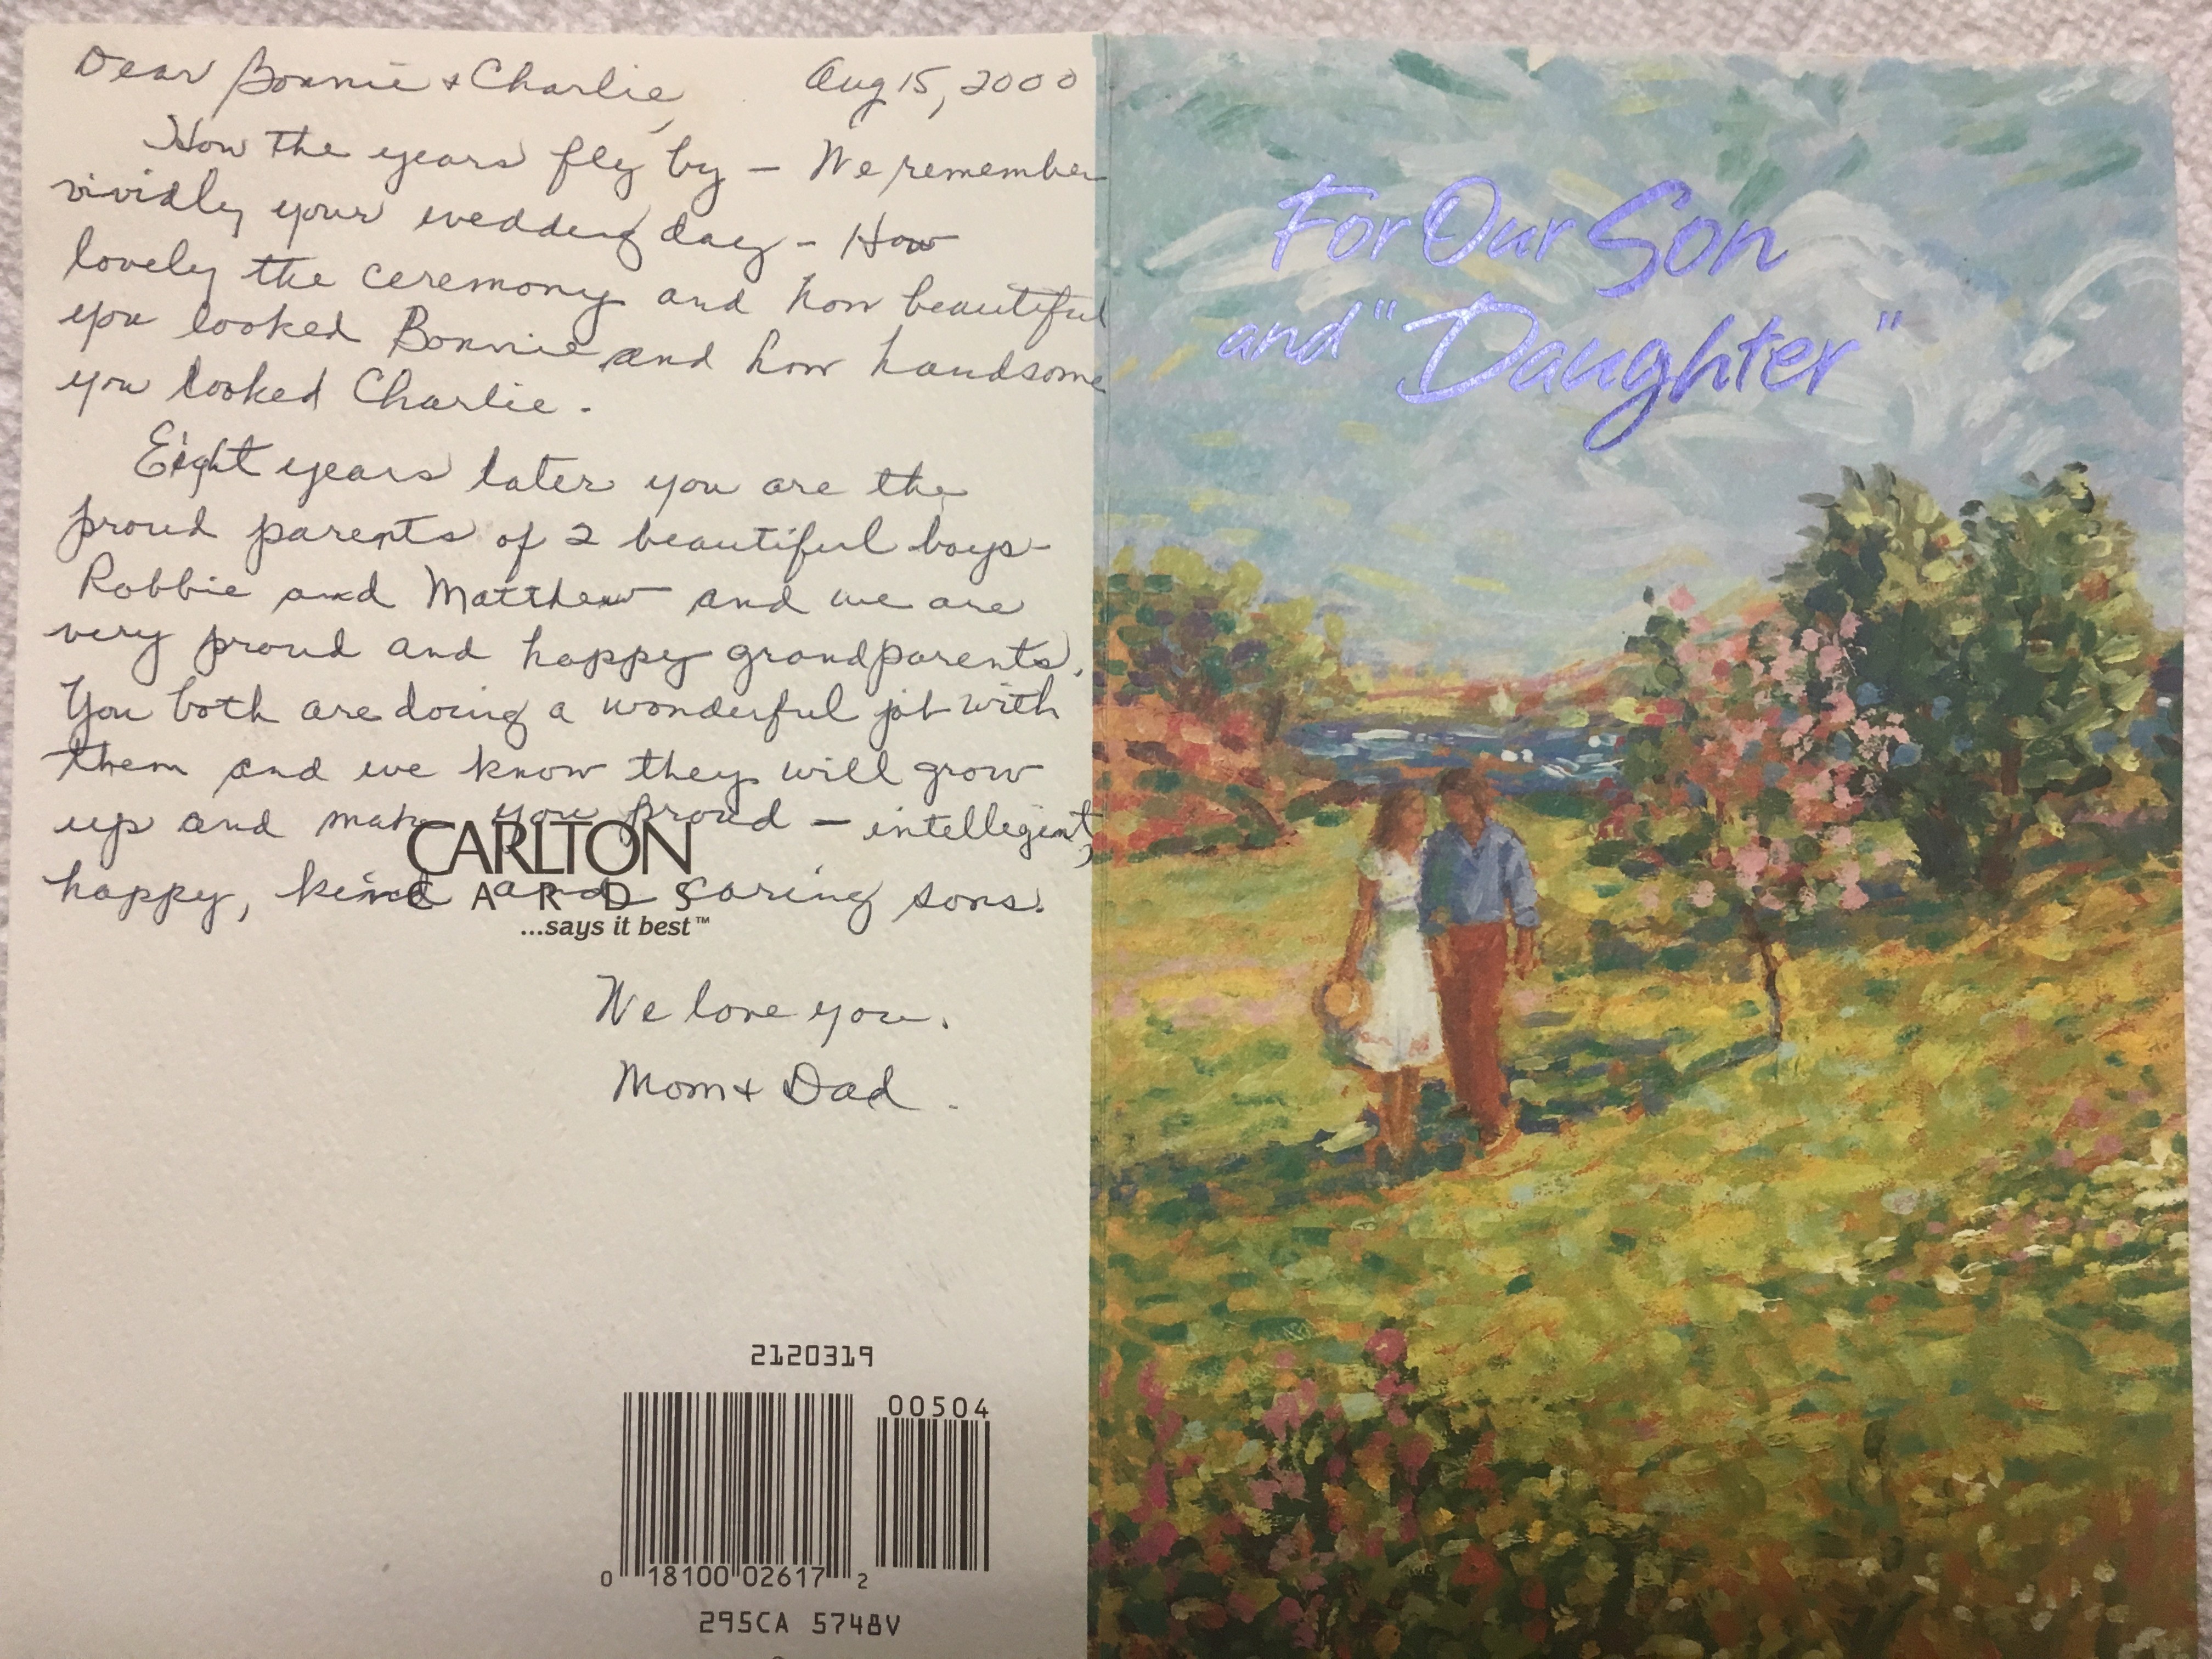 Dear Bonnie + Charlie, Aug 15, 2000
How the years fly by - We remember
vividly your wedding day - How
lovely the ceremony and how beautiful
you looked Bonnie and how handsome
you looked Charlie.
Eight years later you are the
proud parents of 2 beautiful boys -
Robbie and Matthew and we are
very proud and happy grandparents.
You both are doing a wonderful job with
them and we know they will grow
up and make you proud - intellegent,
happy, kind and caring sons.
CARLTON
CARDS
...says it best™
We love you.
Mom + Dad.
2120319
00504
0 18100 02617 2
295CA 5748V
For Our Son
and "Daughter"